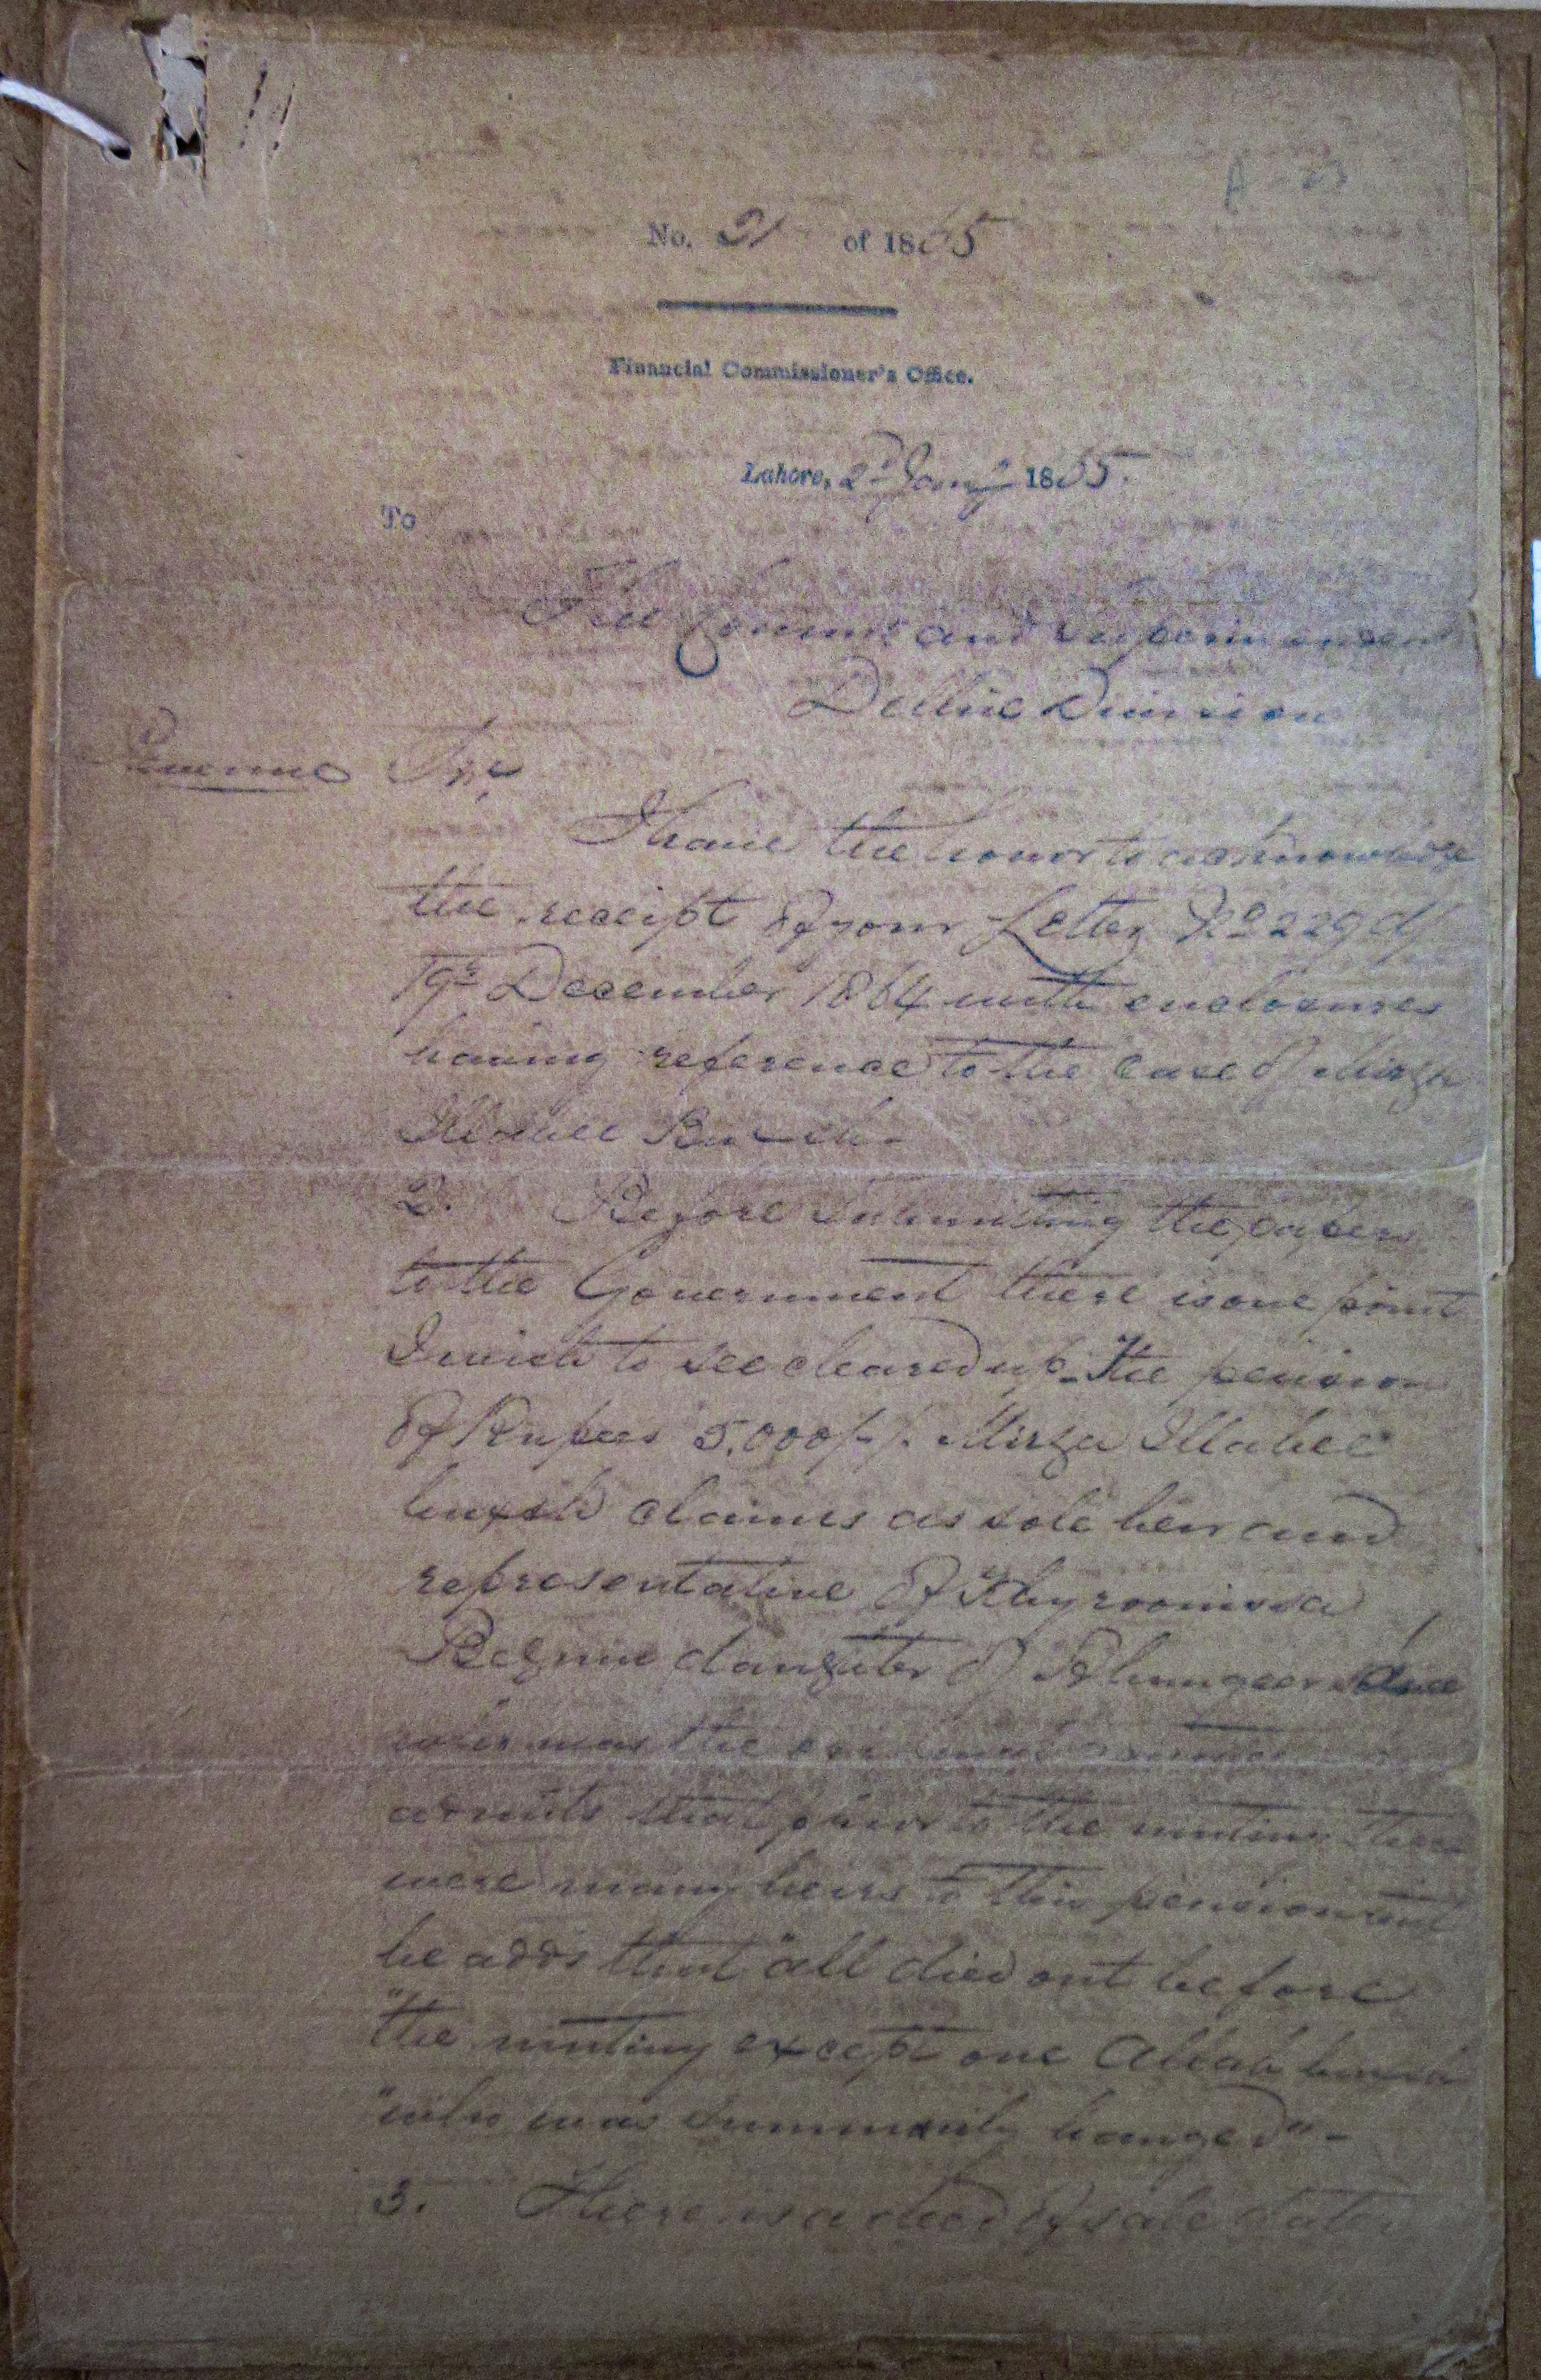 No. 21 of 1865
Financial Commissioner's Office.
Lahore, 2d Jany 1865.
To
The Commr and Superintendent
Delhie Division
Revenue Sir,
I have the honor to acknowledge
the receipt of your Letter No 229 of
19th December 1864 with enclosures
having reference to the case of Mirza
Illahee Buxsh.
2. Before submitting the papers
to the Government there is one point
I wish to see cleared up - The pension
of Rupees 5,000/-/- Mirza Illahee
buxsh claims as sole heir and
representative of Khyroonissa
Begum daughter of Alumgeer
was the
admits that prior to the mutiny there
were many heirs to this pension and
he adds that "all died out before
"the mutiny except one Allah
"who was summarily hanged" -
3. There is a deed of sale dated